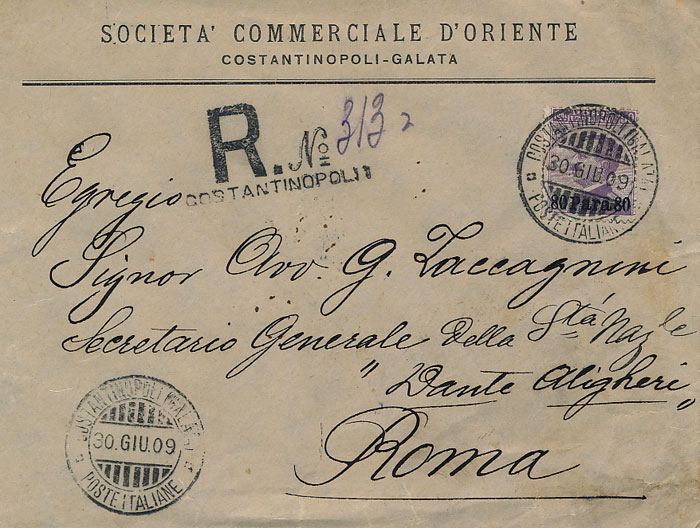 SOCIETA' COMMERCIALE D'ORIENTE
COSTANTINOPOLI-GALATA
R. No 3132
COSTANTINOPOLI 1
COSTANTINOPOLI (GALATA)
30.GIU.09
POSTE ITALIANE
80 Para 80
Egregio
Signor Avv. G. Zaccagnini
Secretario Generale della Stà Nazle
"Dante Aligheri"
Roma
COSTANTINOPOLI (GALATA)
30.GIU.09
POSTE ITALIANE